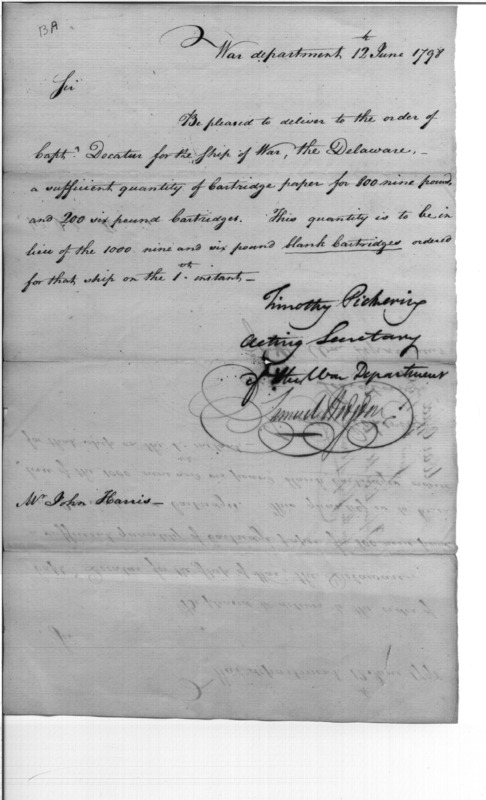 BA
War department 12th June 1798
Sir
Be pleased to deliver to the order of
Captn. Decatur for the Ship of War, the Delaware,
a sufficient quantity of Cartridge paper for 800 nine pound,
and 200 six pound Cartridges. This quantity is to be in
lieu of the 1000 nine and six pound blank Cartridges ordered
for that ship on the 1st. instant
Timothy Pickering
Acting Secretary
of the War Department
Samuel Hodgdon
Mr John Harris